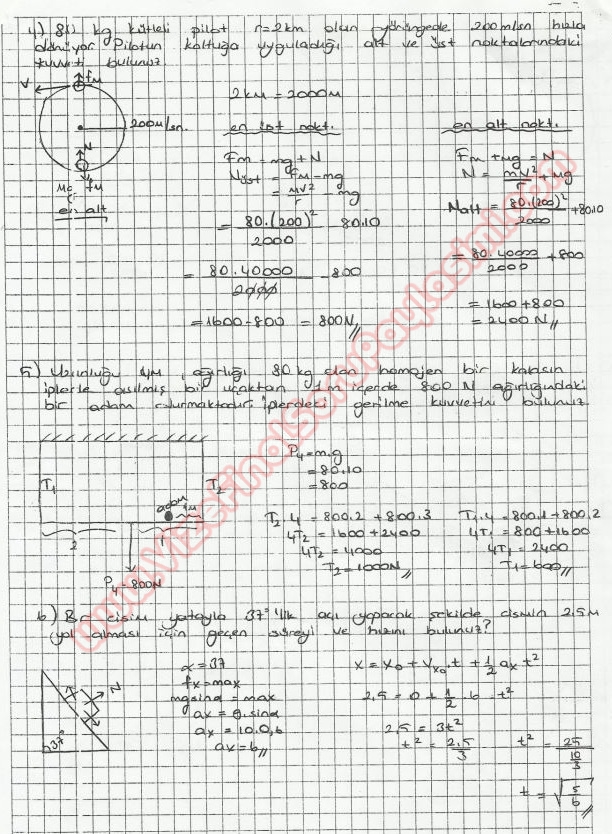 4) 80 kg kütleli pilot r=2km olan yörüngede 200m/sn hızla
dönüyor. Pilotun koltuğa uyguladığı alt ve üst noktalarındaki
kuvveti bulunuz.
V fM
200m/sn.
N
mg fM
en alt
2km = 2000m
en üst nokt.
Fm = mg + N
Nüst = FM - mg
= mv²/r - mg
= 80.(200)²/2000 - 80.10
= 80.40000/2000 - 800
= 1600 - 800 = 800N //
en alt nokt.
Fm + mg = N
N = mv²/r + mg
Nalt = 80.(200)²/2000 + 80.10
= 80.40000/2000 + 800
= 1600 + 800
= 2400 N //
5) Uzunluğu 4m, ağırlığı 80 kg olan homojen bir kalasın
iplerle asılmış bir uçaktan 1m içerde 800 N ağırlığındaki
bir adam oturmaktadır. iplerdeki gerilme kuvvetini bulunuz.
T1 T2
adam 1m
2 1
P4 = 800N
P4 = m.g
= 80.10
= 800
T2.4 = 800.2 + 800.3
4T2 = 1600 + 2400
4T2 = 4000
T2 = 1000N //
T1.4 = 800.1 + 800.2
4T1 = 800 + 1600
4T1 = 2400
T1 = 600 //
6) Bir cisim yatayla 37° lik açı yaparak şekilde cismin 2,5m
yol alması için geçen süreyi ve hızını bulunuz?
N
37°
α = 37
fx = max
mgsinα = max
ax = g.sinα
ax = 10.0,6
ax = 6 //
x = x0 + Vx0.t + 1/2 ax t²
2,5 = 0 + 1/2 . 6 . t²
2,5 = 3t²
t² = 2,5/3 t² = 25/10/3
t = √5/6 //
www.VizeFinalSoruPaylasimi.com